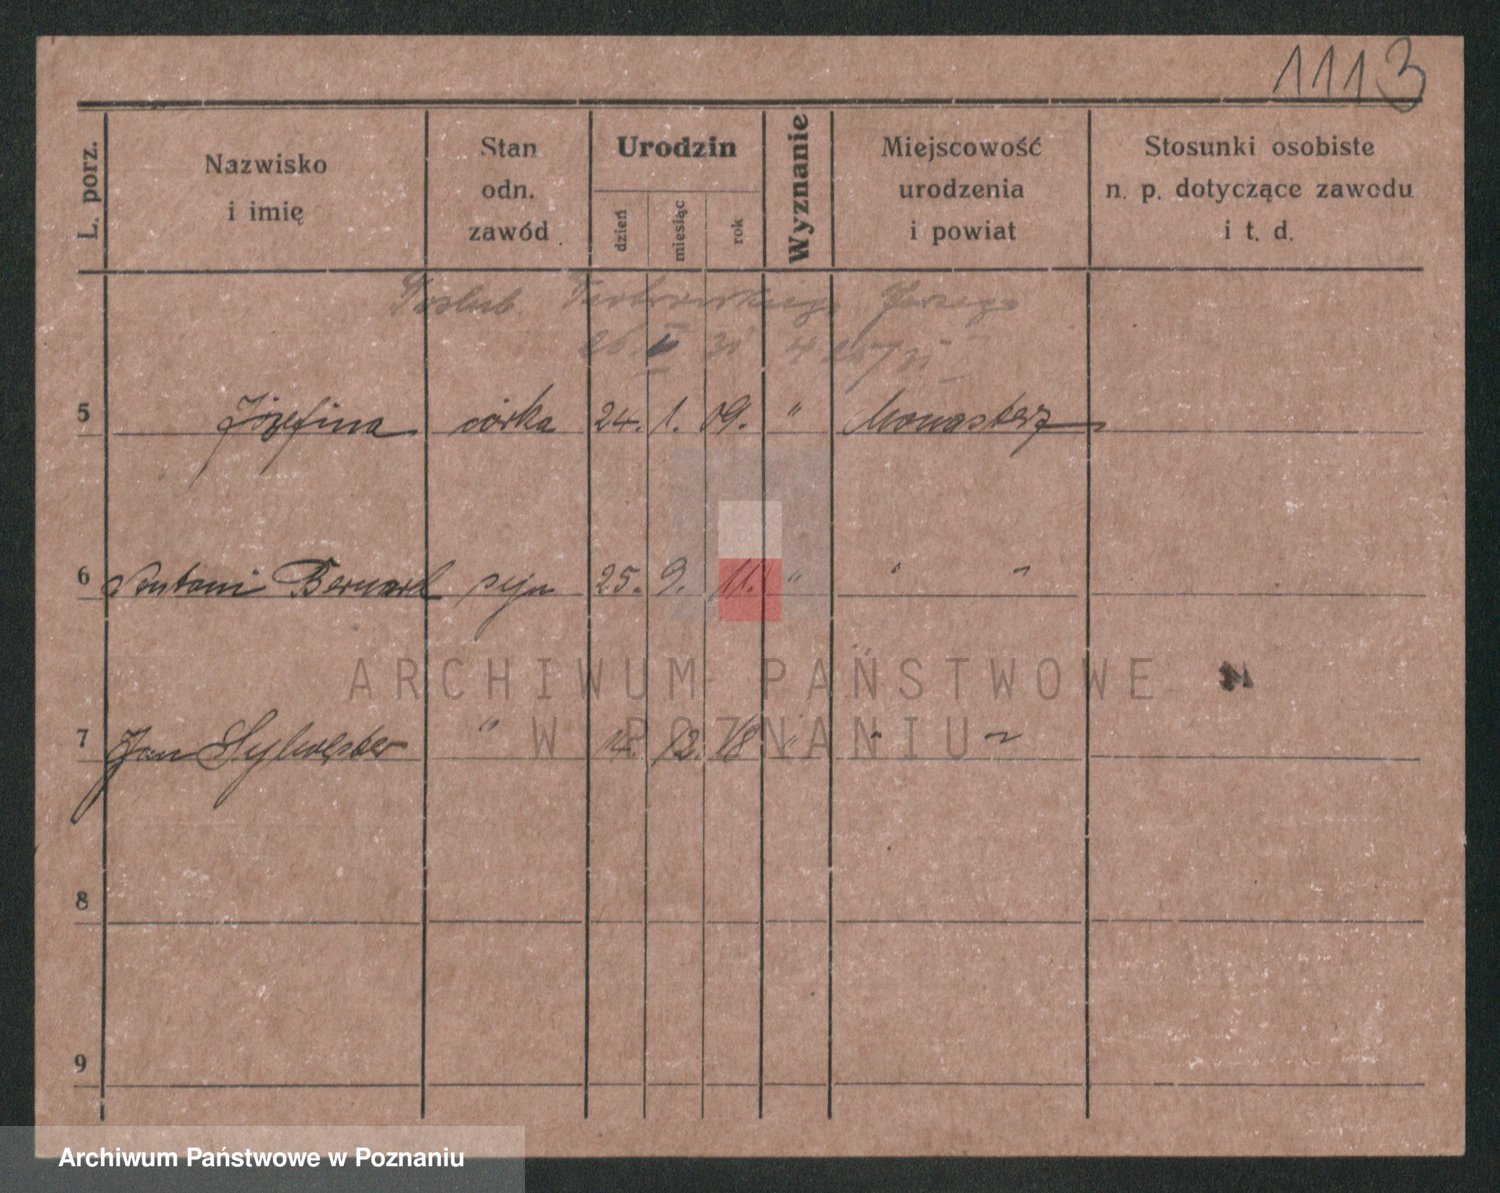 1113
L. porz.
Nazwisko
i imię
Stan
odn.
zawód
Urodzin
dzień
miesiąc
rok
Wyznanie
Miejscowość
urodzenia
i powiat
Stosunki osobiste
n. p. dotyczące zawodu
i t. d.
5 Józefina córka 24. 1. 09. " Monasterz
6 Antoni Bernard syn 25. 9. 11. " " "
7 Jan Sylwester " 14. 12. 18 " " "
8
9
ARCHIWUM PAŃSTWOWE
W POZNANIU
Archiwum Państwowe w Poznaniu